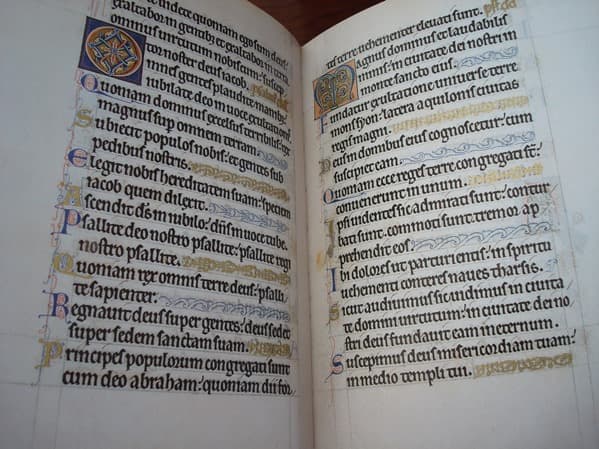 te et videte quoniam ego sum deus:
exaltabor in gentibus et exaltabor in terra.
Dominus virtutum nobiscum: suscep
tor noster deus iacob. psalmus dd.
Omnes gentes plaudite manib:
iubilate deo in voce exultationis.
Quoniam dominus excelsus terribilis: rex
magnus sup omnem terram.
Subiecit populos nobis: et gentes sub
pedibus nostris.
Elegit nobis hereditatem suam: speciem
iacob quem dilexit.
Ascendit ds in iubilo: dns in voce tube.
Psallite deo nostro psallite: psallite regi
nostro psallite.
Quoniam rex omnis terre deus: psalli
te sapienter.
Regnavit deus super gentes: deus sedet
super sedem sanctam suam.
Principes populorum congregati sunt
cum deo abraham: quoniam dii for
tes terre vehementer elevati sunt. ps. dd
Magnus dominus et laudabilis
nimis: in civitate dei nostri in
monte sancto eius.
Fundatur exultatione universe terre
mons syon: latera aquilonis civitas
regis magni.
Deus in domibus eius cognoscetur: cum
suscipiet eam.
Quoniam ecce reges terre congregati st:
convenerunt in unum.
Ipsi videntes sic admirati sunt: contur
bati sunt commoti sunt: tremor ap
prehendit eos.
Ibi dolores ut parturientis: in spiritu
vehementi conteres naves tharsis.
Sicut audivimus sic vidimus in civita
te domini virtutum: in civitate dei no
stri deus fundavit eam in eternum.
Suscepimus deus misericordiam tuam:
in medio templi tui.